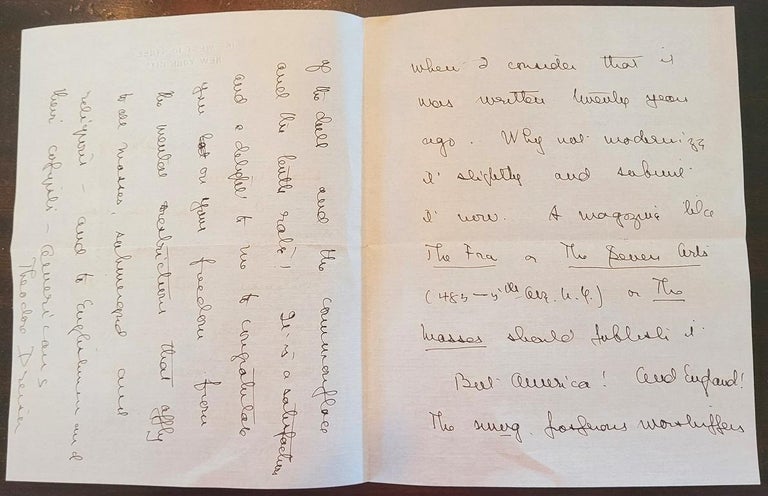 when I consider that it
was written twenty years
ago. Why not modernize
it slightly and submit
it now. A magazine like
The Fra or The Seven Arts
(485—5th Ave. N.Y.) or The
Masses should publish it
But America! And England!
The smug, worshippers
of the dull and the commonplace
and the tenth rate! It is a satisfaction
and a delight to me to congratulate
you on your freedom from
the mental restrictions that apply
to the masses, submerged and
religious — and to Englishmen and
their — Americans
Theodore Dreiser
NEW YORK CITY